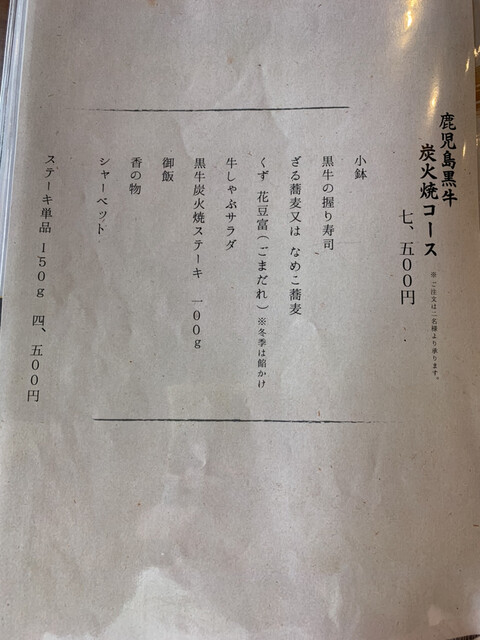 鹿児島黒牛
炭火焼コース
※ご注文は二名様より承ります。
七、五００円
小鉢
黒牛の握り寿司
ざる蕎麦又は なめこ蕎麦
くず 花豆富（ごまだれ）※冬季は餡かけ
牛しゃぶサラダ
黒牛炭火焼ステーキ 一００ｇ
御飯
香の物
シャーベット
ステーキ単品 １５０ｇ 四、五００円